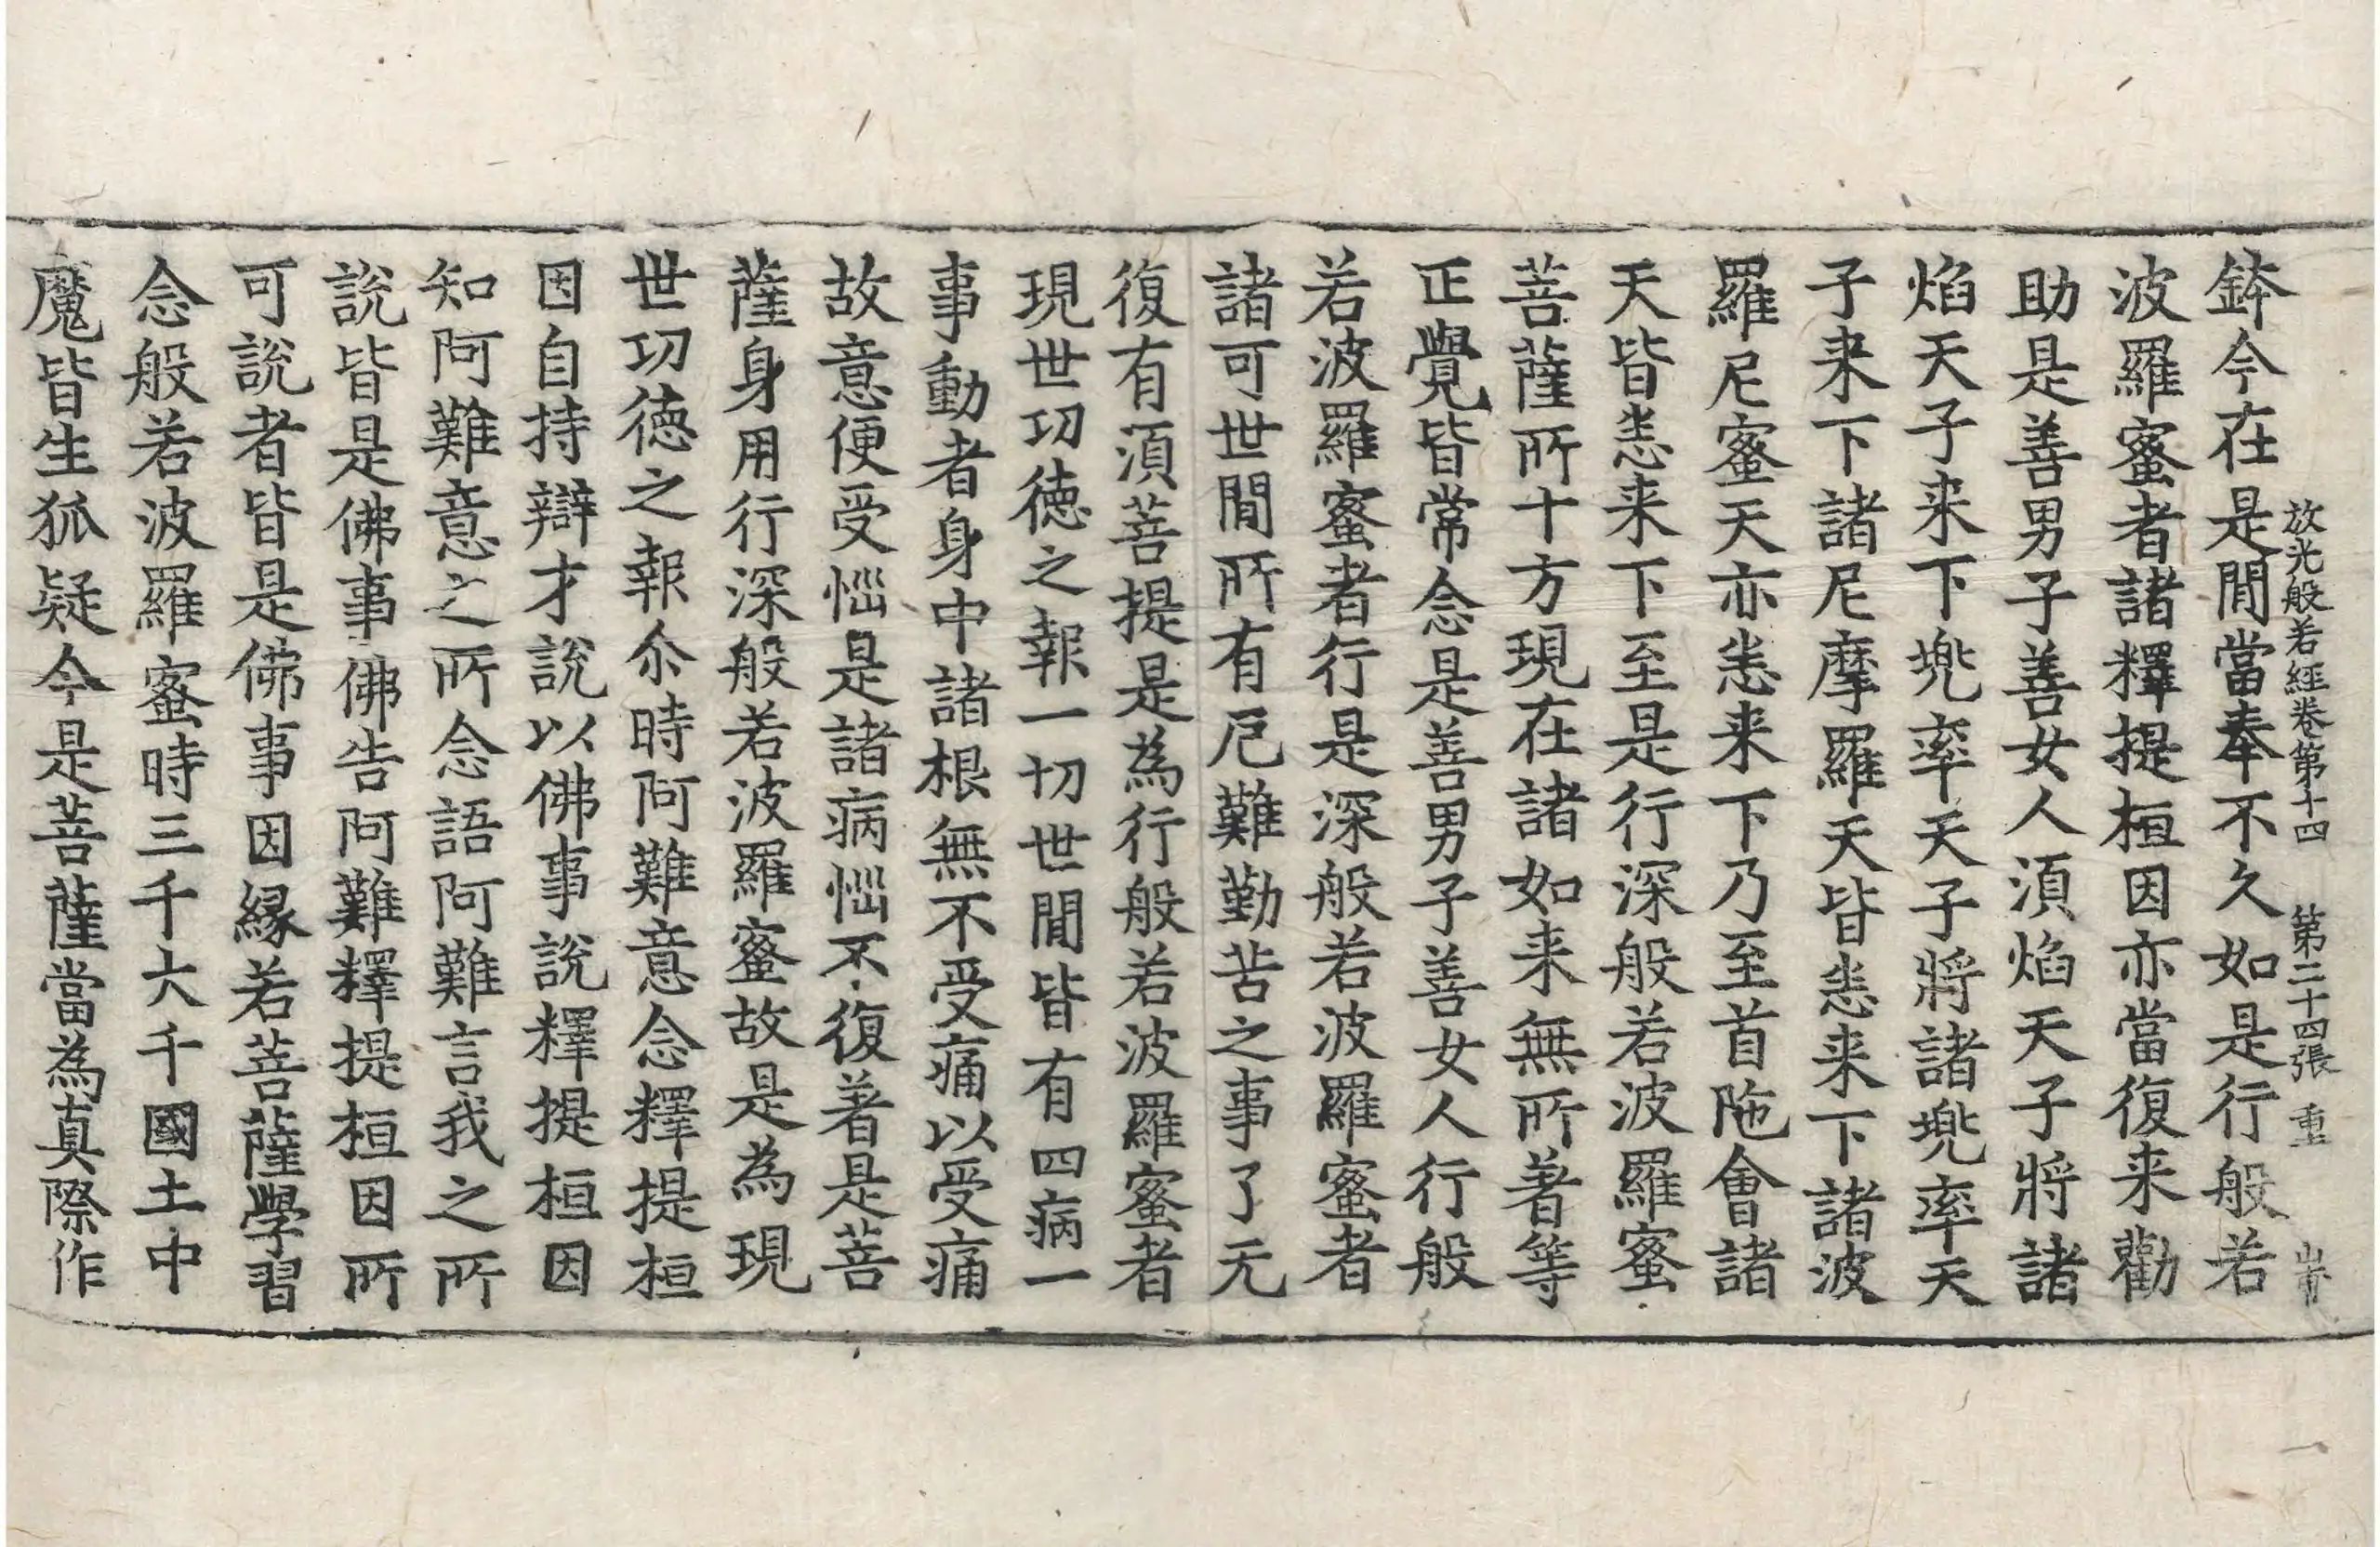 放光般若經卷第十四 第二十四張 重
鉢今在是閒當奉不久如是行般若
波羅蜜者諸釋提桓因亦當復来勸
助是善男子善女人湏焰天子將諸
焰天子来下兠率天子將諸兠率天
子来下諸尼摩羅天皆悉来下諸波
羅尼蜜天亦悉来下乃至首陁會諸
天皆悉来下至是行深般若波羅蜜
菩薩所十方現在諸如来無所著等
正覺皆常念是善男子善女人行般
若波羅蜜者行是深般若波羅蜜者
諸可世閒所有厄難勤苦之事了无
復有湏菩提是為行般若波羅蜜者
現世功徳之報一切世閒皆有四病一
事動者身中諸根無不受痛以受痛
故意便受惱是諸病惱不復著是菩
薩身用行深般若波羅蜜故是為現
世功徳之報尒時阿難意念釋提桓
因自持辯才說以佛事說釋提桓因
知阿難意之所念語阿難言我之所
說皆是佛事佛告阿難釋提桓因所
可說者皆是佛事因緣若菩薩學習
念般若波羅蜜時三千大千國土中
魔皆生狐疑今是菩薩當為真際作